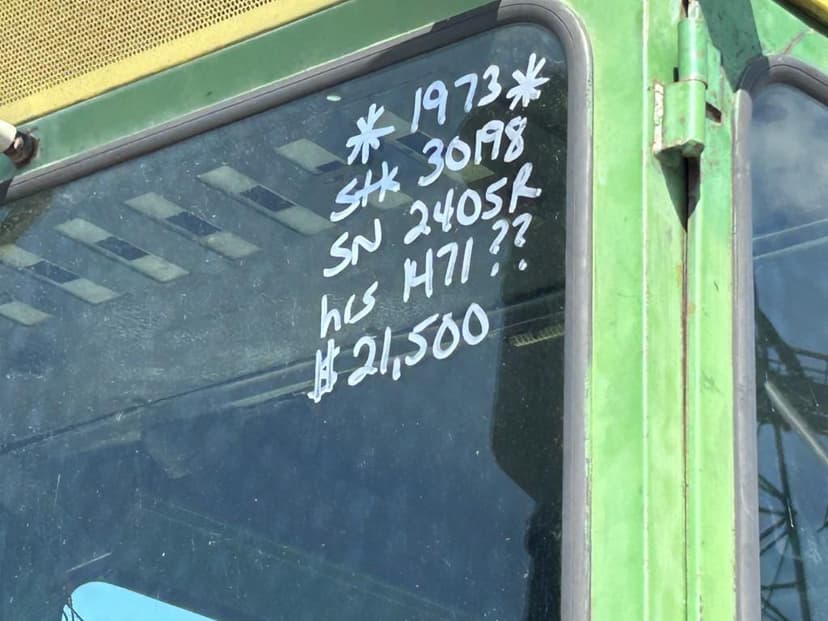 * 1973 *
Stk 30198
SN 2405R
hrs 1471 ??
$21,500